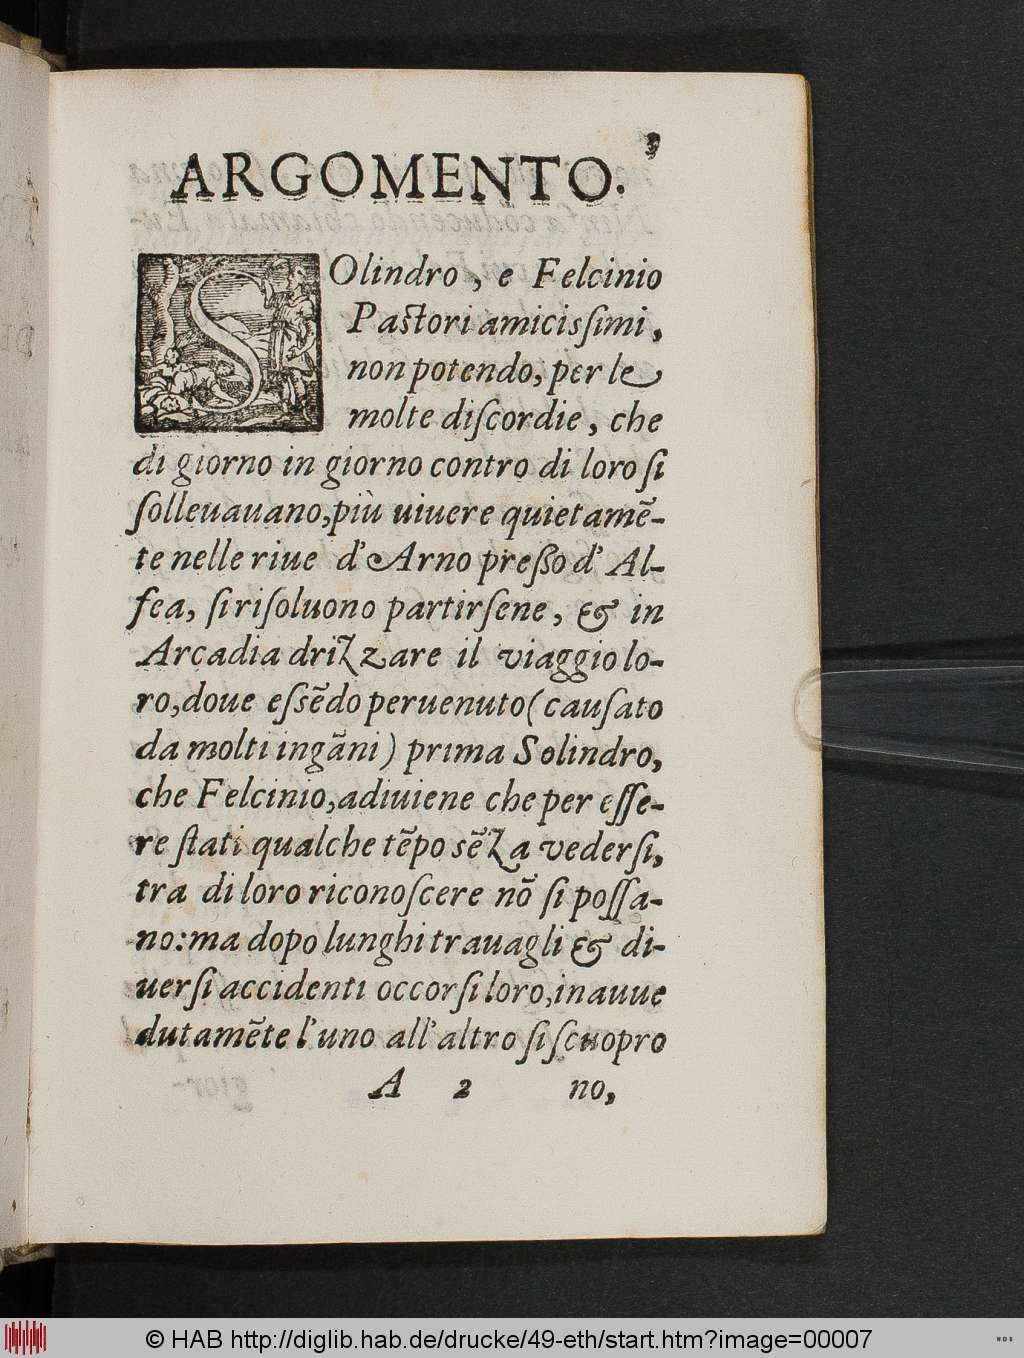 3
ARGOMENTO.
SOlindro, e Felcinio
Paſtori amiciſſimi,
non potendo, per le
molte diſcordie, che
di giorno in giorno contro di loro ſi
ſolleuauano, più uiuere quietamẽ-
te nelle riue d'Arno preſſo d'Al-
fea, ſi riſoluono partirſene, & in
Arcadia drizzare il viaggio lo-
ro, doue eſsẽdo peruenuto (cauſato
da molti ingãni) prima Solindro,
che Felcinio, adiuiene che per eſſe-
re ſtati qualche tẽpo sẽza vederſi,
tra di loro riconoſcere nõ ſi poſſa-
no: ma dopo lunghi trauagli & di-
uerſi accidenti occorſi loro, inauue
dutamẽte l'uno all'altro ſi ſcuopro
A 2 no,
© HAB http://diglib.hab.de/drucke/49-eth/start.htm?image=00007